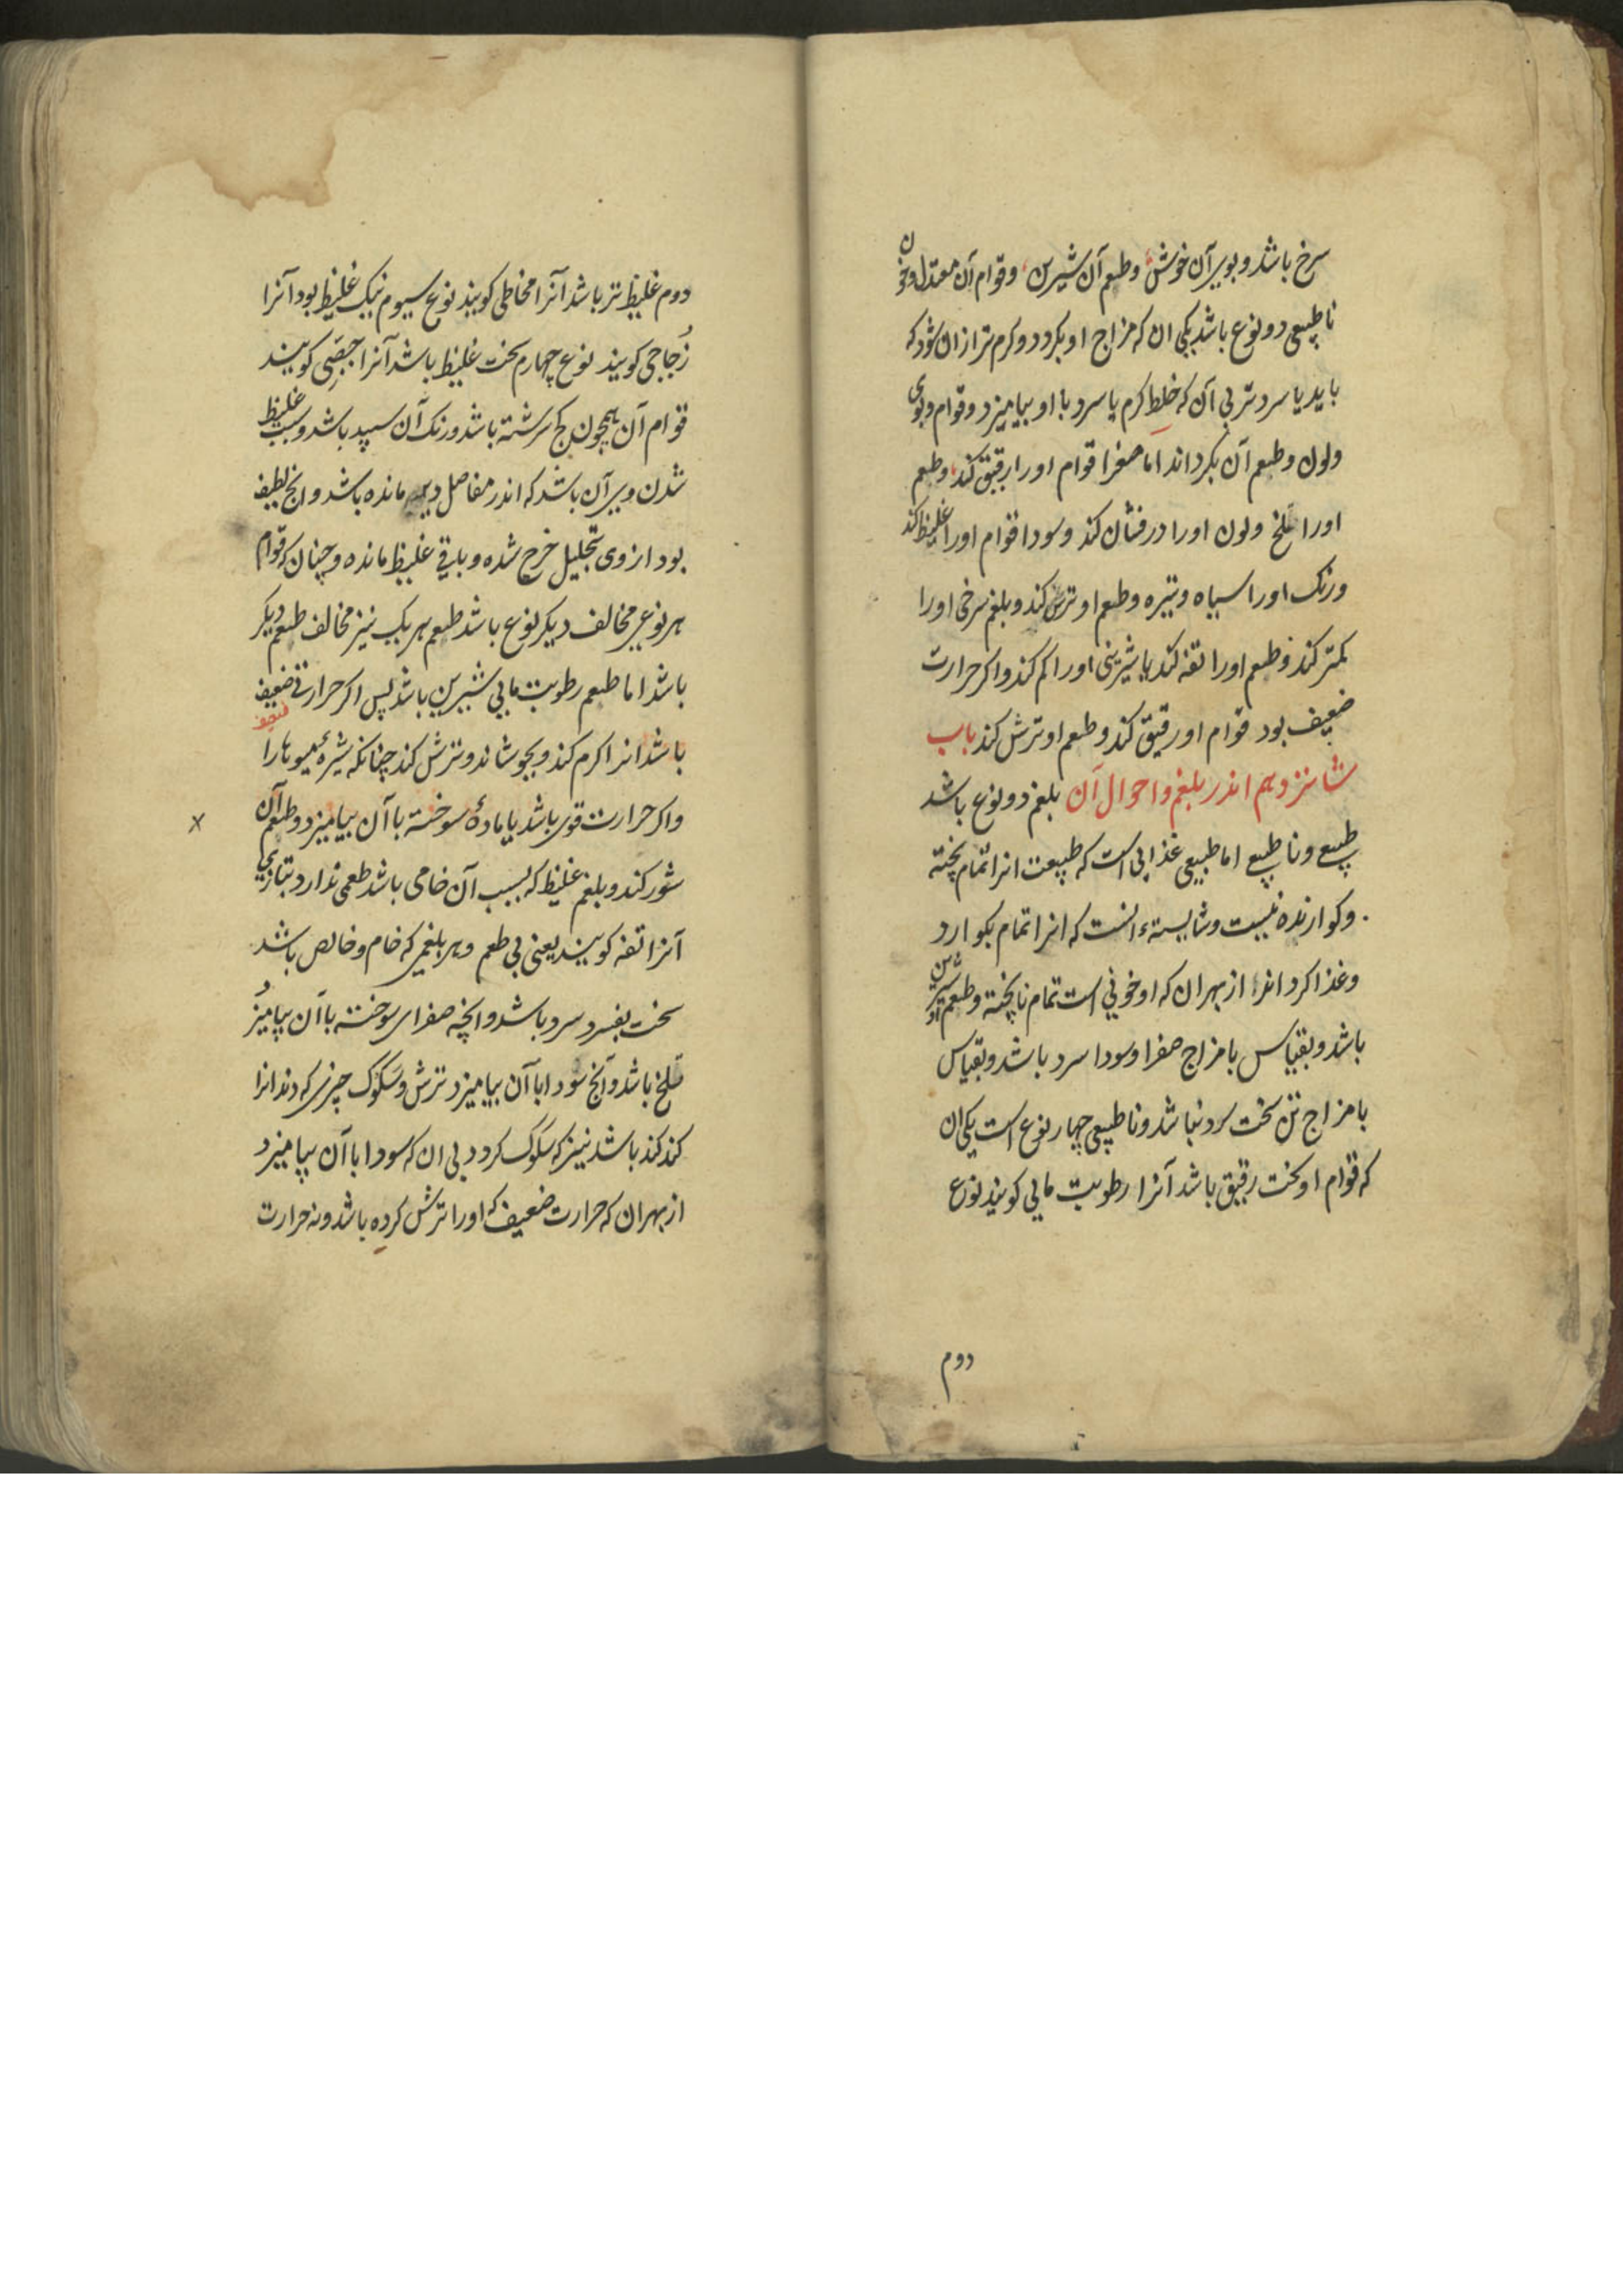 سرخ باشد و بوی آن خوش و طعم آن شیرین و قوام آن معتدل و خون
ناطبیعی دو نوع باشد یکی ان که مزاج او بکردد و کرم تر ازان شود که
باید یا سردتر بی آن که خلط کرم یا سرد با او بیامیزد و قوام و بوی
ولون وطعم آن بکرداند اما صفرا قوام اورا رقیق کند وطعم
اورا تلخ ولون اورا درفشان کند وسودا قوام اورا غلیظ کند
ورنک اورا سیاه وتیره وطعم او ترش کند وبلغم سرخی اورا
کمتر کند وطعم اورا تفه کند یا شیرینی اورا کم کند واکر حرارت
ضعیف بود قوام او رقیق کند وطعم او ترش کند باب
شانزدهم اندر بلغم واحوال آن بلغم دو نوع باشد
طبیعی وناطبیعی اما طبیعی غذایی است که طبیعت انرا تمام پخته
وکوارنده نیست وشایستهء انست که انرا تمام بکوارد
وغذا کرداند از بهر ان که او خونی است تمام ناپخته وطعم او شیرین
باشد وبقیاس با مزاج صفرا وسودا سرد باشد وبقیاس
با مزاج تن سخت سرد نباشد وناطبیعی چهار نوع است یکی ان
که قوام او سخت رقیق باشد آنرا رطوبت مایی کویند نوع
دوم
دوم غلیظ تر باشد آنرا مخاطی کویند نوع سیوم نیک غلیظ بود آنرا
زُجاجی کویند نوع چهارم سخت غلیظ باشد آنرا جصّی کویند
قوام آن همچون کچ سرشته باشد ورنک آن سپید باشد وسبب غلیظ
شدن وی آن باشد که اندر مفاصل دیر مانده باشد وانچ لطیف
بود از وی بتحلیل خرج شده وباقی غلیظ مانده وچنان که قوام
هر نوعی مخالف دیکر نوع باشد طعم هر یک نیز مخالف طعم دیکر
باشد اما طعم رطوبت مایی شیرین باشد پس اکر حرارتی ضعیف
ضعیف
باشد انرا کرم کند وبجوشاند وترش کند چنانکه شیرهٔ میوها را
واکر حرارت قوی باشد یا مادهٔ سوخته با آن بیامیزد وطعم آن
شور کند وبلغم غلیظ که بسبب آن خامی باشد طعمی ندارد بتازی
آنرا تفه کویند یعنی بی طعم وهر بلغمی که خام وخالص باشد
سخت بفسرد سرد باشد وانچه صفرای سوخته با آن بیامیزد
تلخ باشد وآنچ سودا با آن بیامیزد ترش وسکوک چیزی که دندانرا
کند کند باشد نیز که سکوک کردد بی ان که سودا با آن بیامیزد
از بهر ان که حرارت ضعیف که اورا ترش کرده باشد ونه حرارت